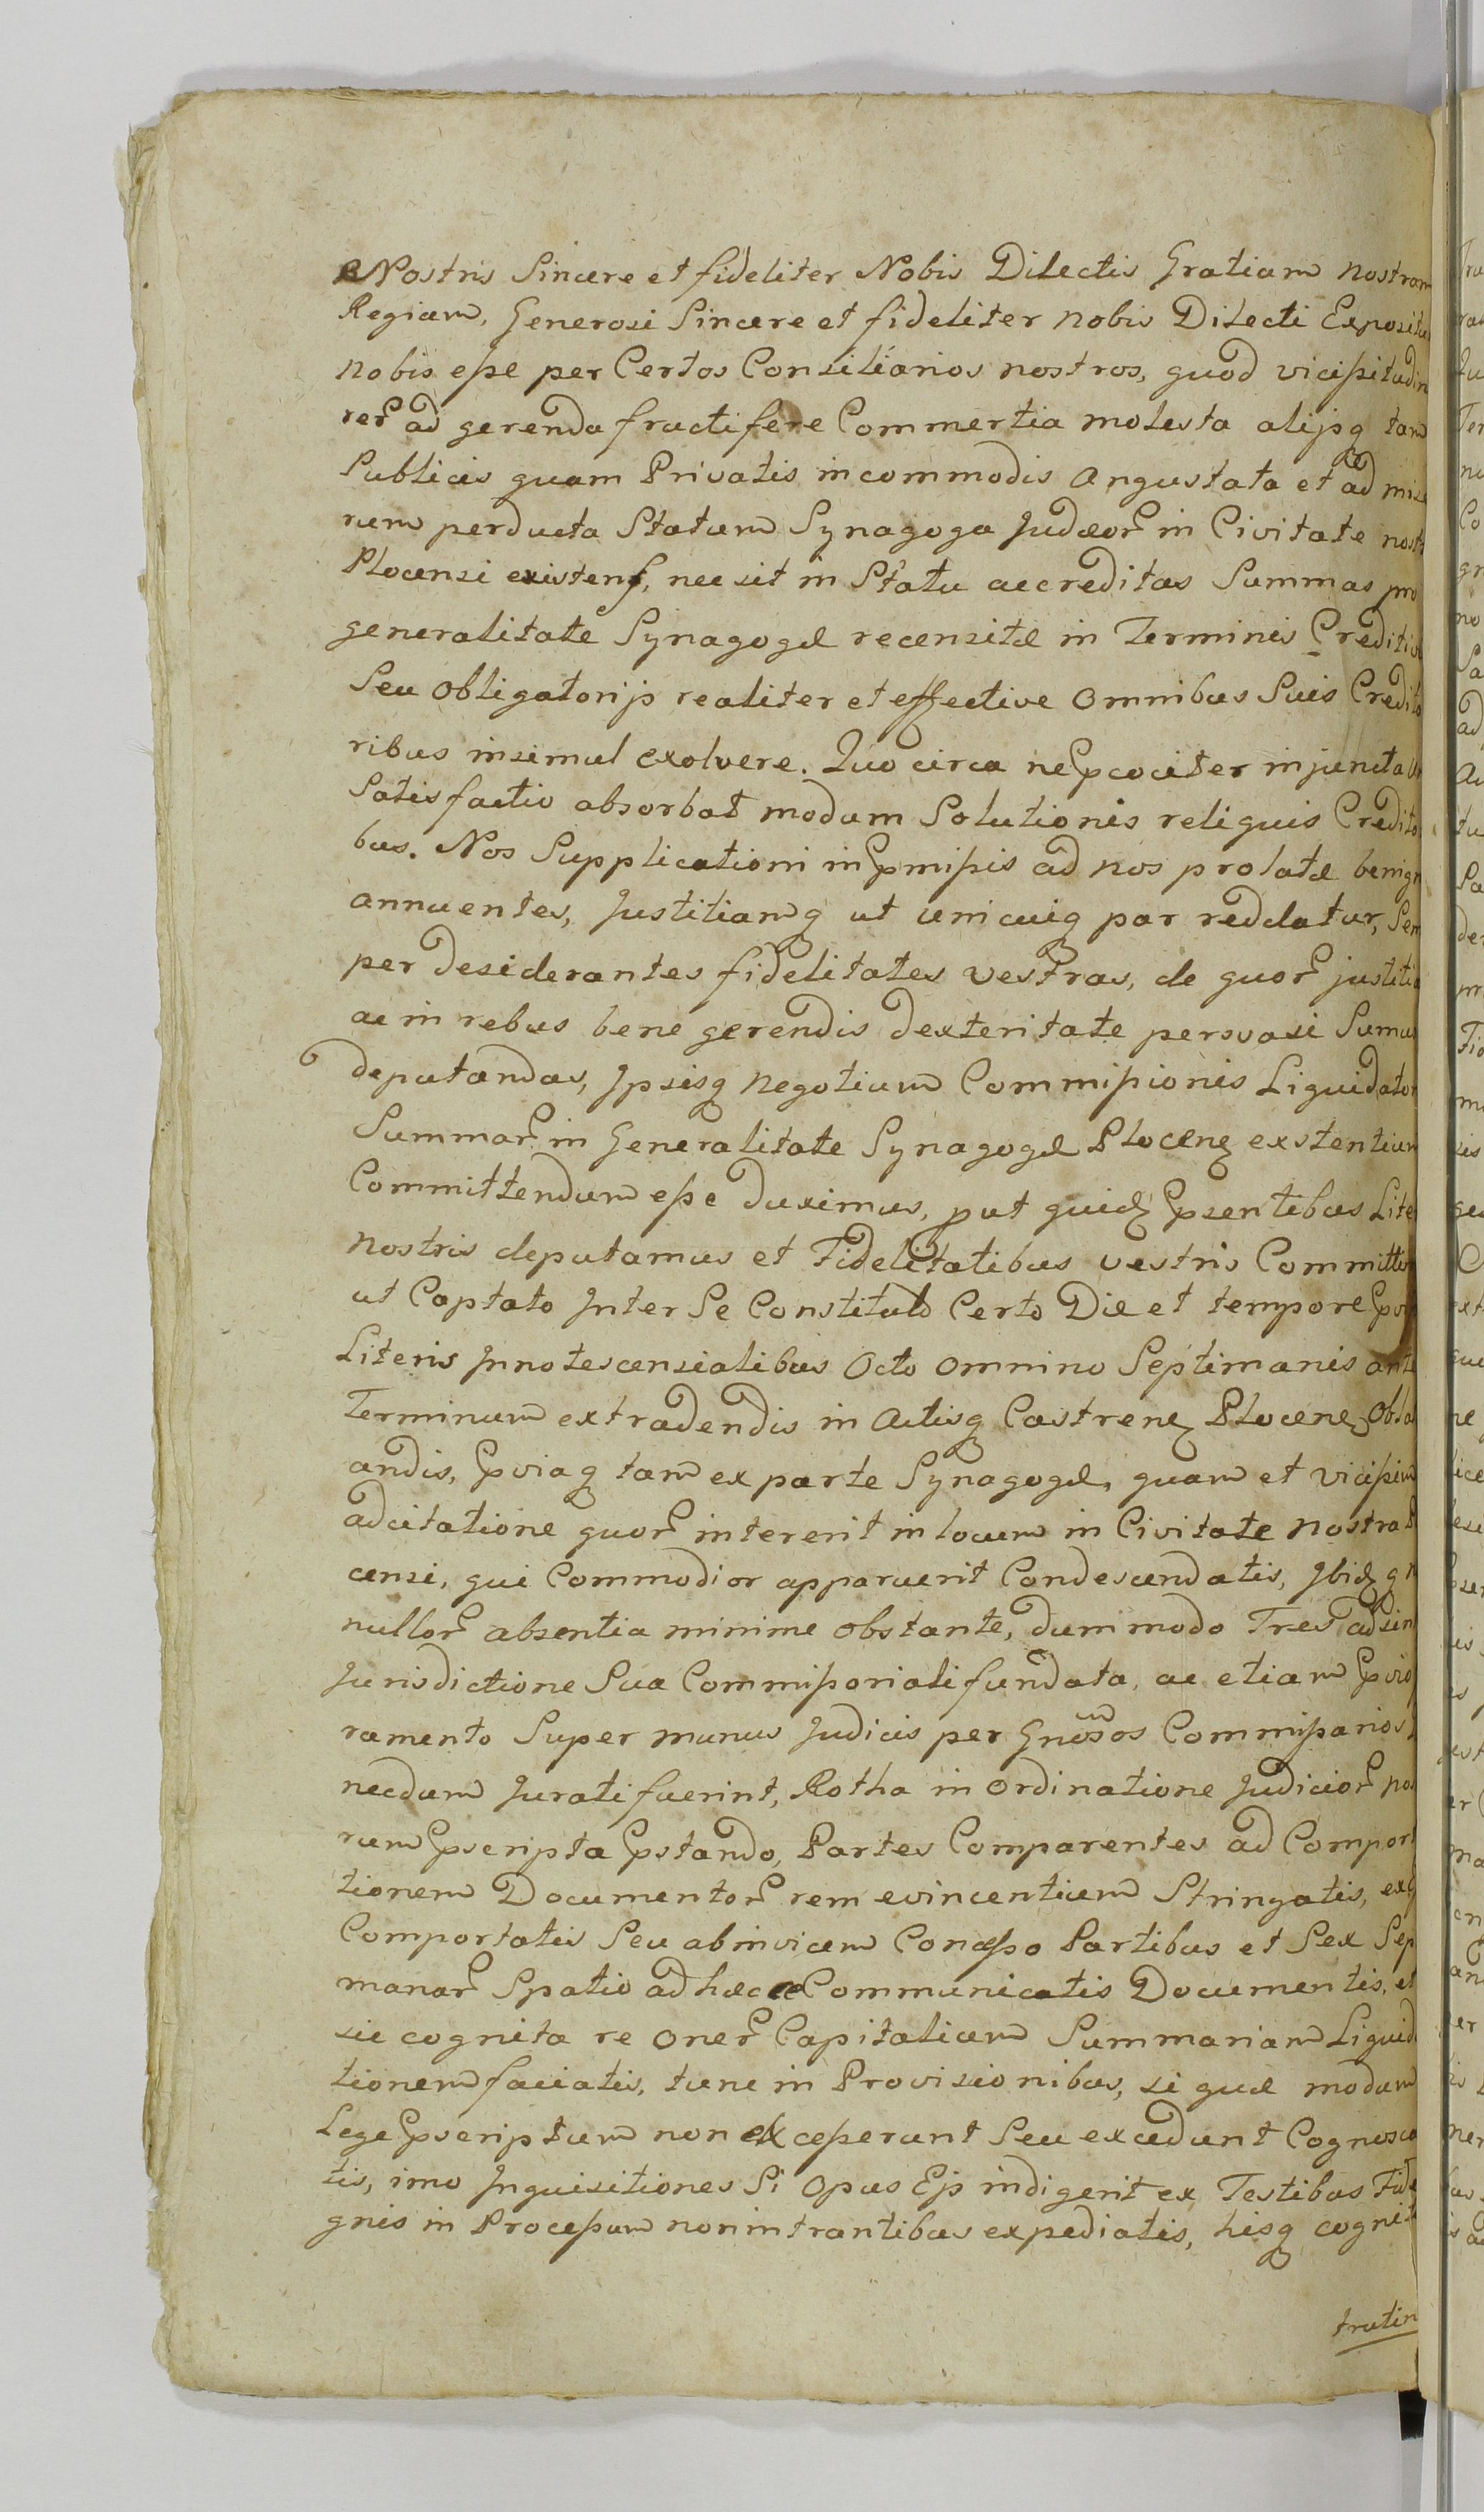 Nostris Sincere et fideliter Nobis Dilectis Gratiam nostram
Regiam, Generosi Sincere et fideliter nobis Dilecti Exposit
nobis eſse per Certos Consiliarios nostros, quod viciſsitudin
rer̃ ad gerenda fructifere Commertia molesta alijsq tam
Publicis quam Privatis incommodis angustata et ad mise
rum perducta Statum Synagoga Judæor̃ in Civitate nost
Plocensi existens, nec sit in Statu accreditas Summas pro
generalitate Synagogæ recensitæ in Terminis Crediti
Seu Obligatorijs realiter et effective omnibus Suis Credito
ribus insimul exolvere. Quo circa ne pcociter injuncta
Satisfactio absorbat modum Solutionis reliquis Credito
bus. Nos Supplicationi in pmiſsis ad nos prolatæ benign
annuentes, Justitiamq ut unicuiq par reddatur, Sem
per desiderantes fidelitates vestras, de quor̃ justiti
ac in rebus bene gerendis dexteritate persvasi Sumus
deputandas, Jpsisq negotium Commiſsionis Liquidator
Summar̃ in Generalitate Synagogæ Plocenz existentium
Committendum eſse duximus, put quidz psentibus Lite
nostris deputamus et Fidelitatibus vestris Committim
ut Captato Inter Se Constituto Certo Die et tempore
Literis Innotescensialibus Octo omnino Septimanis ante
Terminum extradendis in Actisq Castrenz Plocenz Obla
andis, pviaq tam ex parte Synagogæ, quam et viciſsim
adcitatione quor̃ intererit in locum in Civitate nostra
censi, qui Commodior apparuerit Condescendatis, Jbidz
nullor̃ absentia minime obstante, dummodo Tres adsin
Jurisdictione Sua Commiſsoriali fundata, ac etiam
ramento Super munus Judicis per Gnosos Commiſsarios
necdum Jurati fuerint, Rotha in ordinatione Judicior̃ pos
rum pscripta pstando, Partes Comparentes ad Comport
tionem Documentor̃ rem evincentium Stringatis,
Comportatis Seu abinvicem Conceſso Partibus et Sex Sep
manar̃ Spatio ad hæc Communicatis Documentis, et
sic cognita re oner̃ Capitalium Summariam Liquid
tionem faciatis, tunc in Provisionibus, si quæ modum
Lege pscriptum non exceſserunt Seu excedunt Cognosca
tis, imo Inquisitiones Si opus Ejs indigerit ex Testibus Fide
gnis in Proceſsum non intrantibus expediatis, hisq cognit
trutin